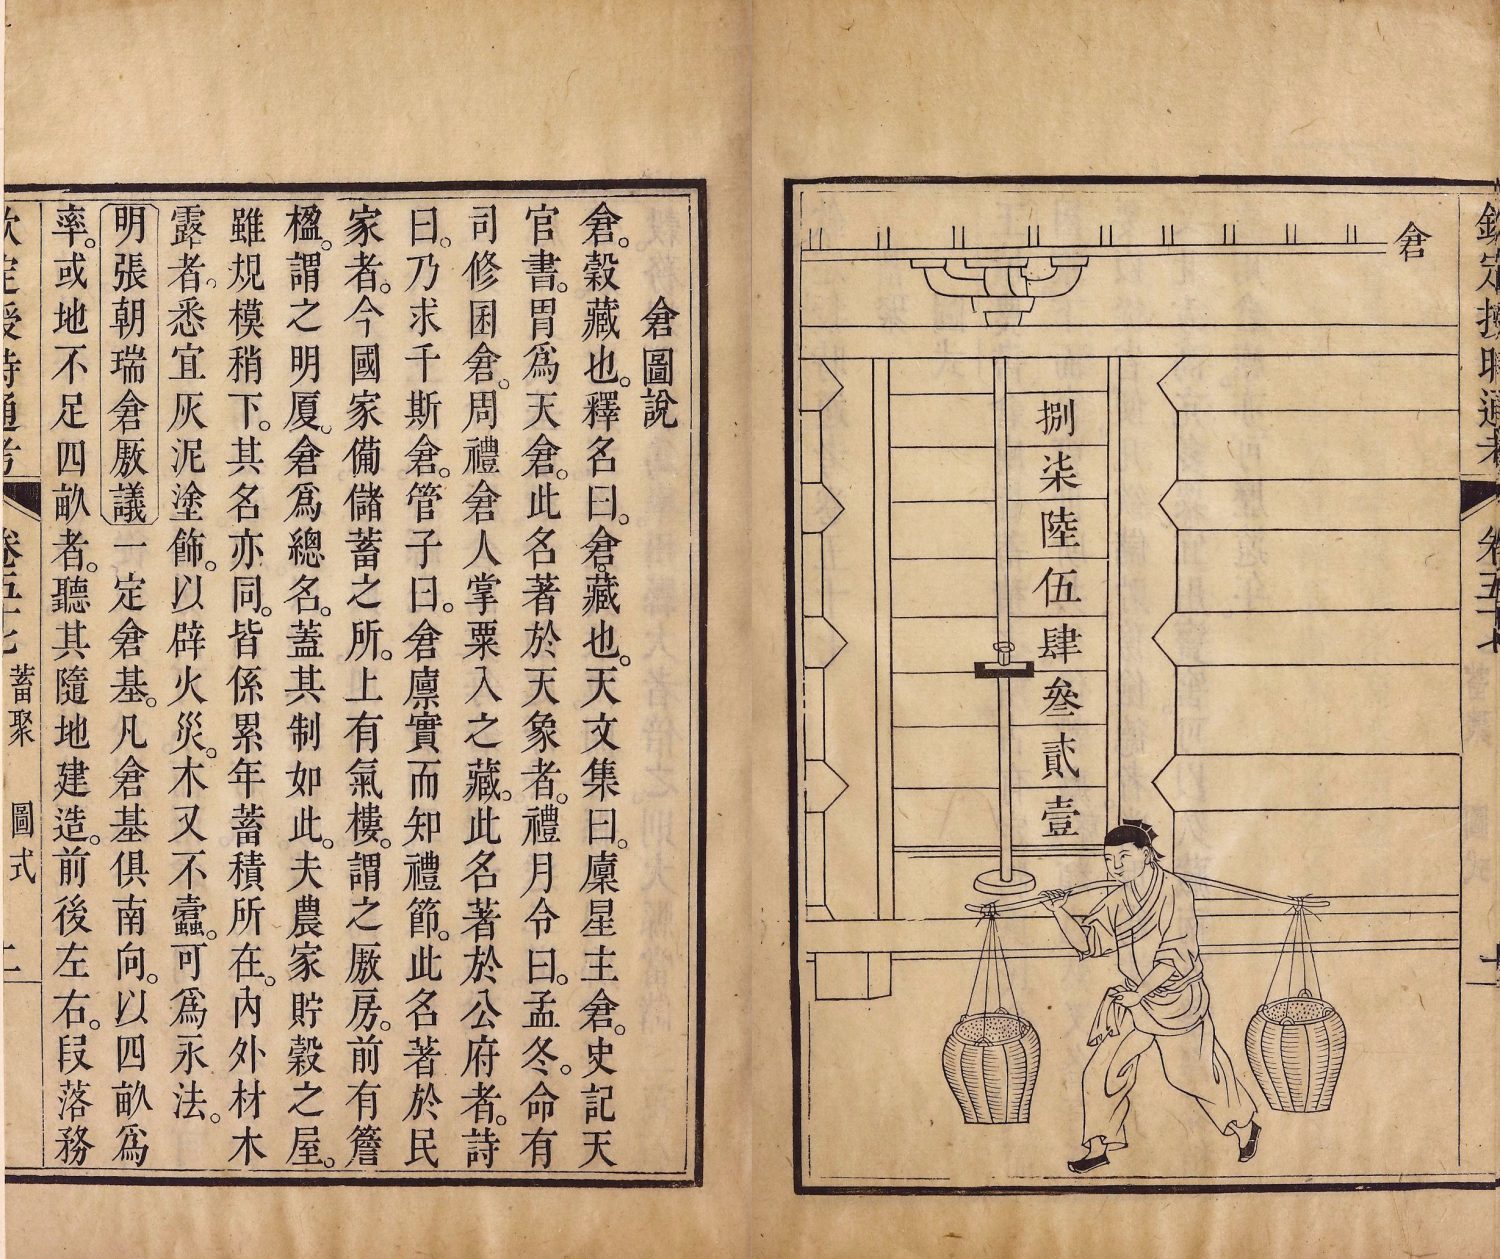 欽定授時通考 卷五十七
倉
捌
柒
陸
伍
肆
叄
貳
壹
倉圖說
倉。穀藏也。釋名曰。倉。藏也。天文集曰。廩星主倉。史記天
官書。胃爲天倉。此名著於天象者。禮月令曰。孟冬。命有
司修囷倉。周禮倉人掌粟入之藏。此名著於公府者。詩
曰。乃求千斯倉。管子曰。倉廩實而知禮節。此名著於民
家者。今國家備儲蓄之所。上有氣樓。謂之厫房。前有簷
楹。謂之明厦。倉爲總名。蓋其制如此。夫農家貯穀之屋。
雖規模稍下。其名亦同。皆係累年蓄積所在。內外材木
露者。悉宜灰泥塗飾。以辟火災。木又不蠹。可爲永法。
明張朝瑞倉厫議 一定倉基。凡倉基俱南向。以四畝爲
率。或地不足四畝者。聽其隨地建造。前後左右。段落務
欽定授時通考 卷五十七 蓄聚 圖式